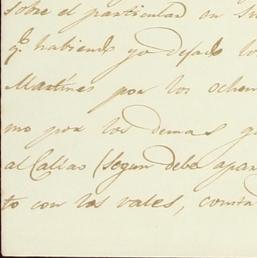 sobre el particular en su
q.e habiendo yo dejado lo
Martines por los ochen
mo por los demas g
al Callao (segun debe apar
to con los vales, conta